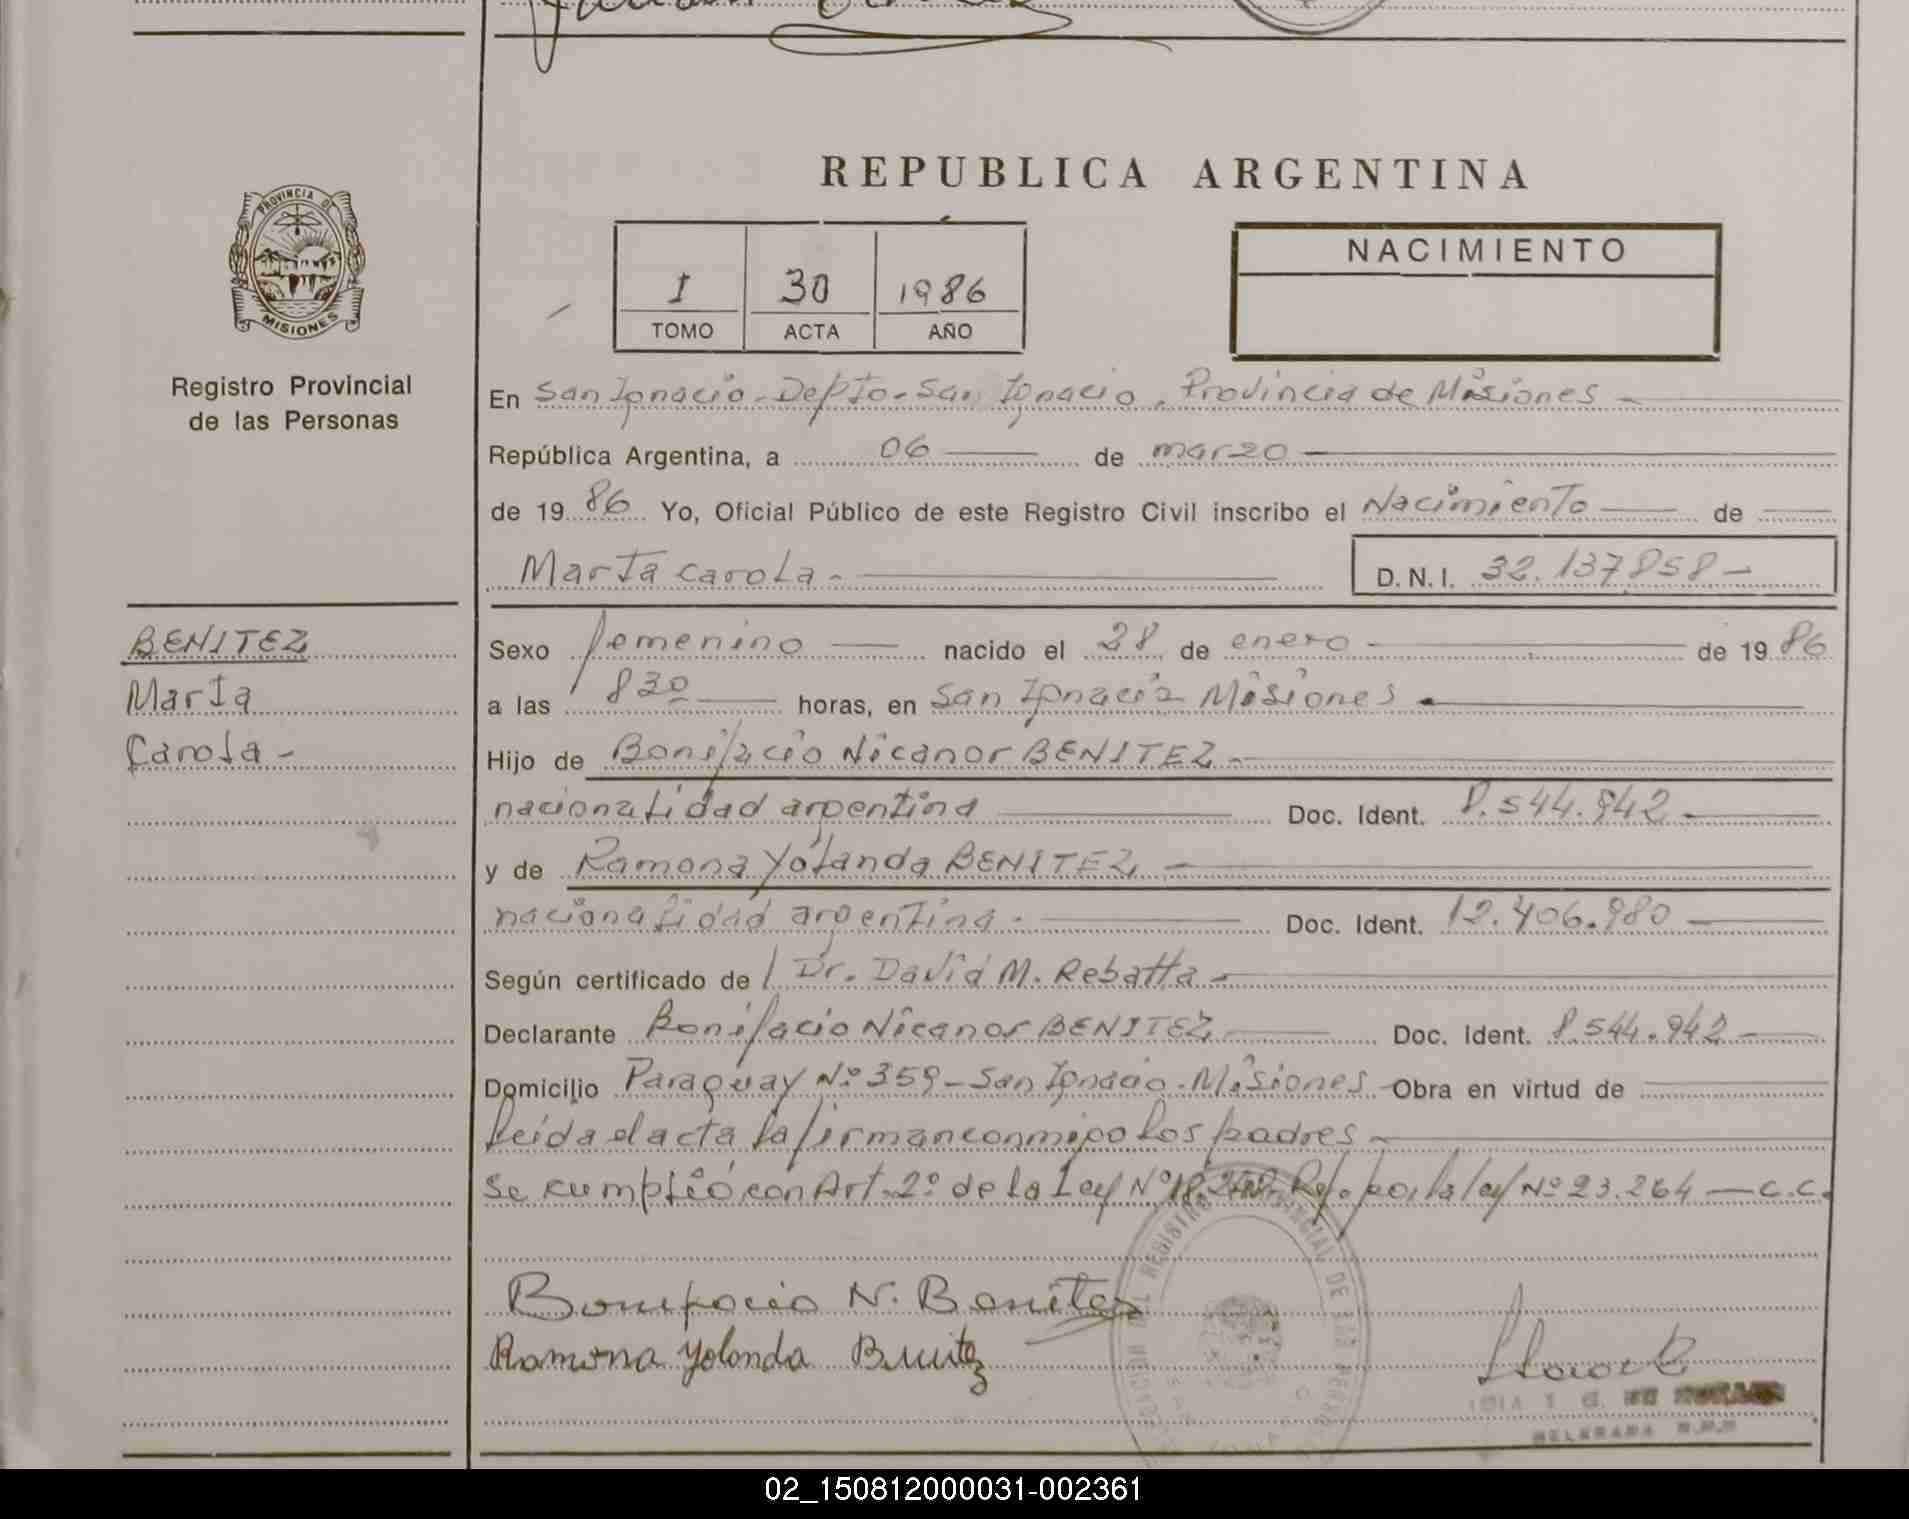 REPUBLICA ARGENTINA
PROVINCIA DE
MISIONES
Registro Provincial
de las Personas
I 30 1986
TOMO ACTA AÑO
NACIMIENTO
En San Ignacio - Depto - San Ignacio. Provincia de Misiones -
República Argentina, a 06 de marzo
de 1986 Yo, Oficial Público de este Registro Civil inscribo el Nacimiento de
Marta Carola - D.N.I. 32.137858 -
BENITEZ
Marta
Carola -
Sexo femenino nacido el 28 de enero de 1986
a las 830 horas, en San Ignacio Misiones
Hijo de Bonifacio Nicanor BENITEZ -
nacionalidad argentina Doc. Ident. 8.544.942
y de Ramona Yolanda BENITEZ -
nacionalidad argentina - Doc. Ident. 12.406.980
Según certificado de / Dr. David M. Rebatta -
Declarante Bonifacio Nicanor BENITEZ Doc. Ident. 8.544.942
Domicilio Paraguay Nº 359 - San Ignacio - Misiones - Obra en virtud de
leida el acta la firman conmigo los padres -
Se cumplió con Art. 2º de la Ley Nº 18.248 Ref. por la ley Nº 23.264 — C.C.
Bonifacio N. Benitez
Ramona Yolanda Benitez
REGISTRO PROVINCIAL DE LAS
02_150812000031-002361